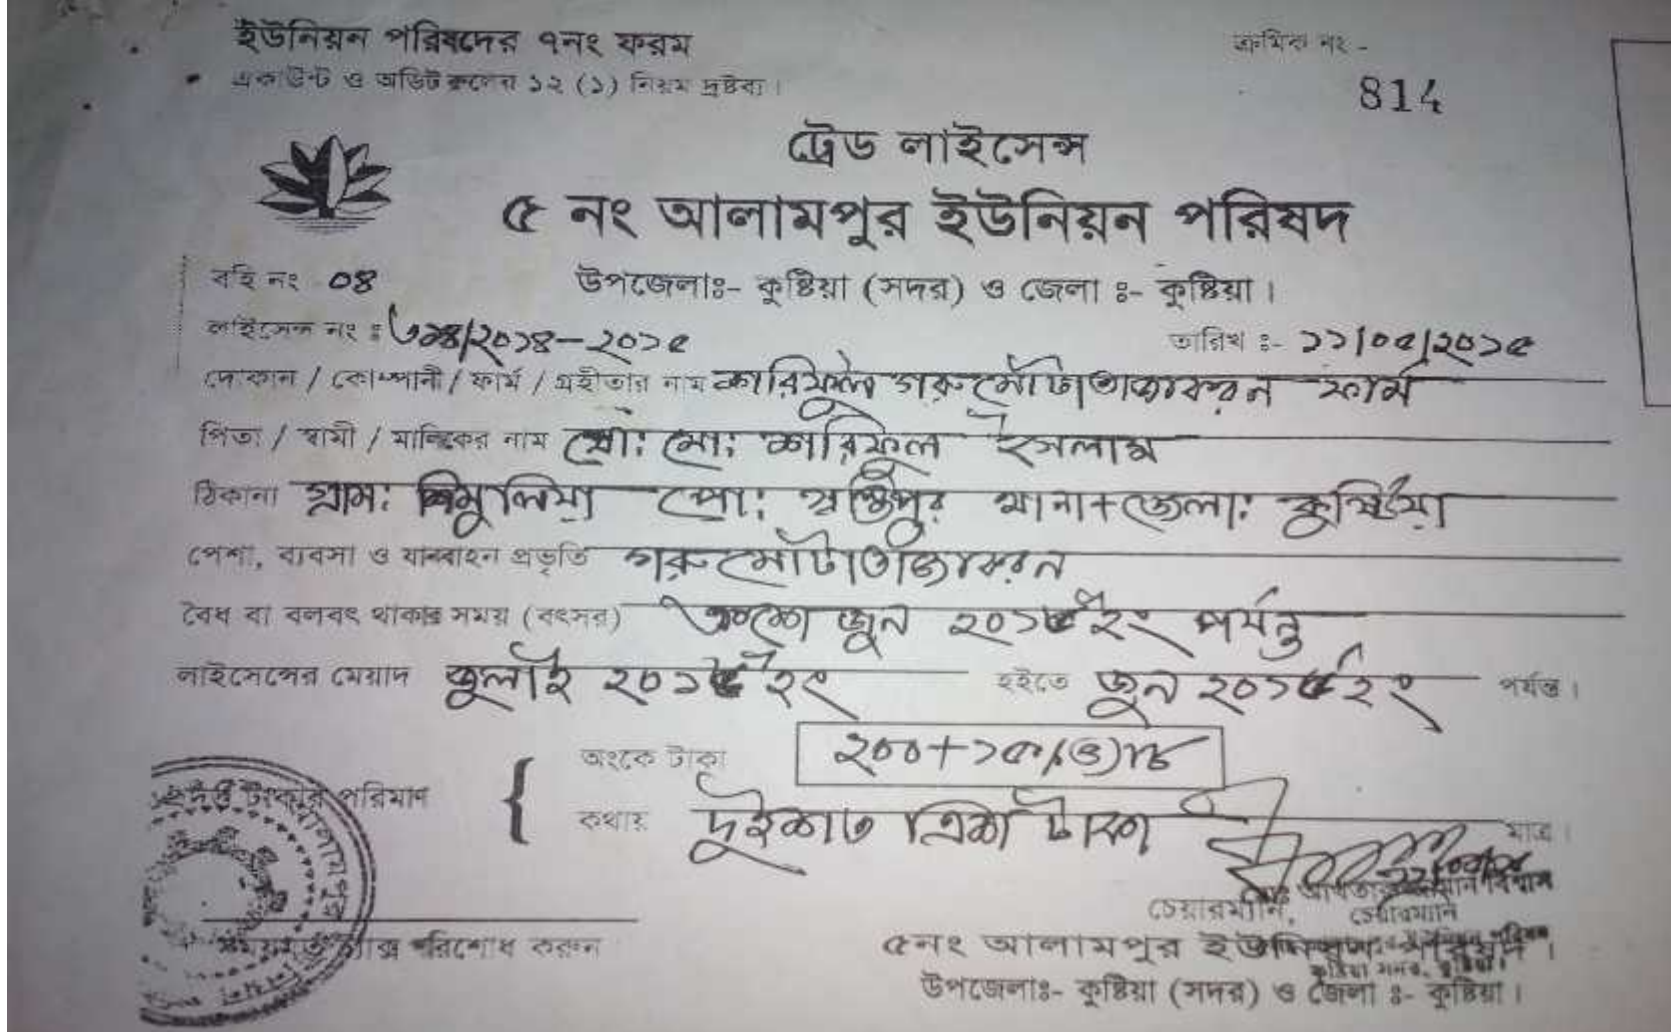 ইউনিয়ন পরিষদের ৭নং ফরম
ক্রমিক নং -
একাউন্ট ও অডিট রুলের ১২ (১) নিয়ম দ্রষ্টব্য।
814
ট্রেড লাইসেন্স
৫ নং আলামপুর ইউনিয়ন পরিষদ
বহি নং ০৪
উপজেলাঃ- কুষ্টিয়া (সদর) ও জেলা ঃ- কুষ্টিয়া।
লাইসেন্স নং ঃ /২০১৪-২০১৫ তারিখ ঃ- ১১/০৫/২০১৫
দোকান / কোম্পানী / ফার্ম / গ্রহীতার নাম গরু মোটাতাজাকরন ফার্ম
পিতা / স্বামী / মালিকের নাম প্রো: মো: শরিফুল ইসলাম
ঠিকানা গ্রাম: শিমুলিয়া পো: স্বস্তিপুর থানা+জেলা: কুষ্টিয়া
পেশা, ব্যবসা ও যানবাহন প্রভৃতি গরু মোটাতাজাকরন
বৈধ বা বলবৎ থাকার সময় (বৎসর) ৩০শে জুন ২০১৫ ইং পর্যন্ত
লাইসেন্সের মেয়াদ জুলাই ইং হইতে জুন ২০১৫ ইং পর্যন্ত।
অংকে টাকা ২০০+
প্রদত্ত টাকার পরিমাণ
কথায় দুইশত ত্রিশ টাকা মাত্র।
চেয়ারম্যান,
চেয়ারম্যান
সময়মত ট্যাক্স পরিশোধ করুন
৫নং আলামপুর ইউনিয়ন পরিষদ।
কুষ্টিয়া সদর, কুষ্টিয়া।
উপজেলাঃ- কুষ্টিয়া (সদর) ও জেলা ঃ- কুষ্টিয়া।